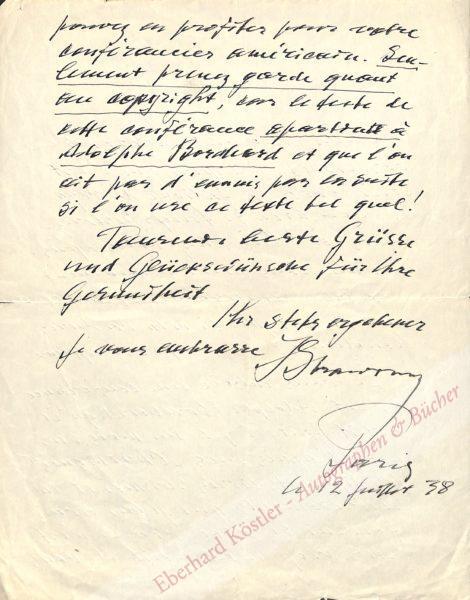 pouvez en profiter pour votre
conférancier américain. Seu-
lement prenez garde quant
au copyright, car le texte de
cette conférance apartient à
Adolphe Borchard et que l'on
ait pas d'ennuis par la suite
si l'on use ce texte tel quel!
Tausende beste Grüsse
und Glückswünsche für Ihre
Gesundheit
Ihr stets ergebener
je vous embrasse IStrawinsky
Paris
le 12 Juillet 38
Eberhard Köstler - Autographen & Bücher